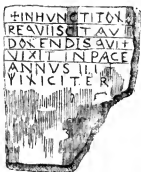 +INHUNCTITOX
REQUIISCITAV
DOXENDISQUIT
VIXITINPACE
ANNUS II.I.ET
VINICITER